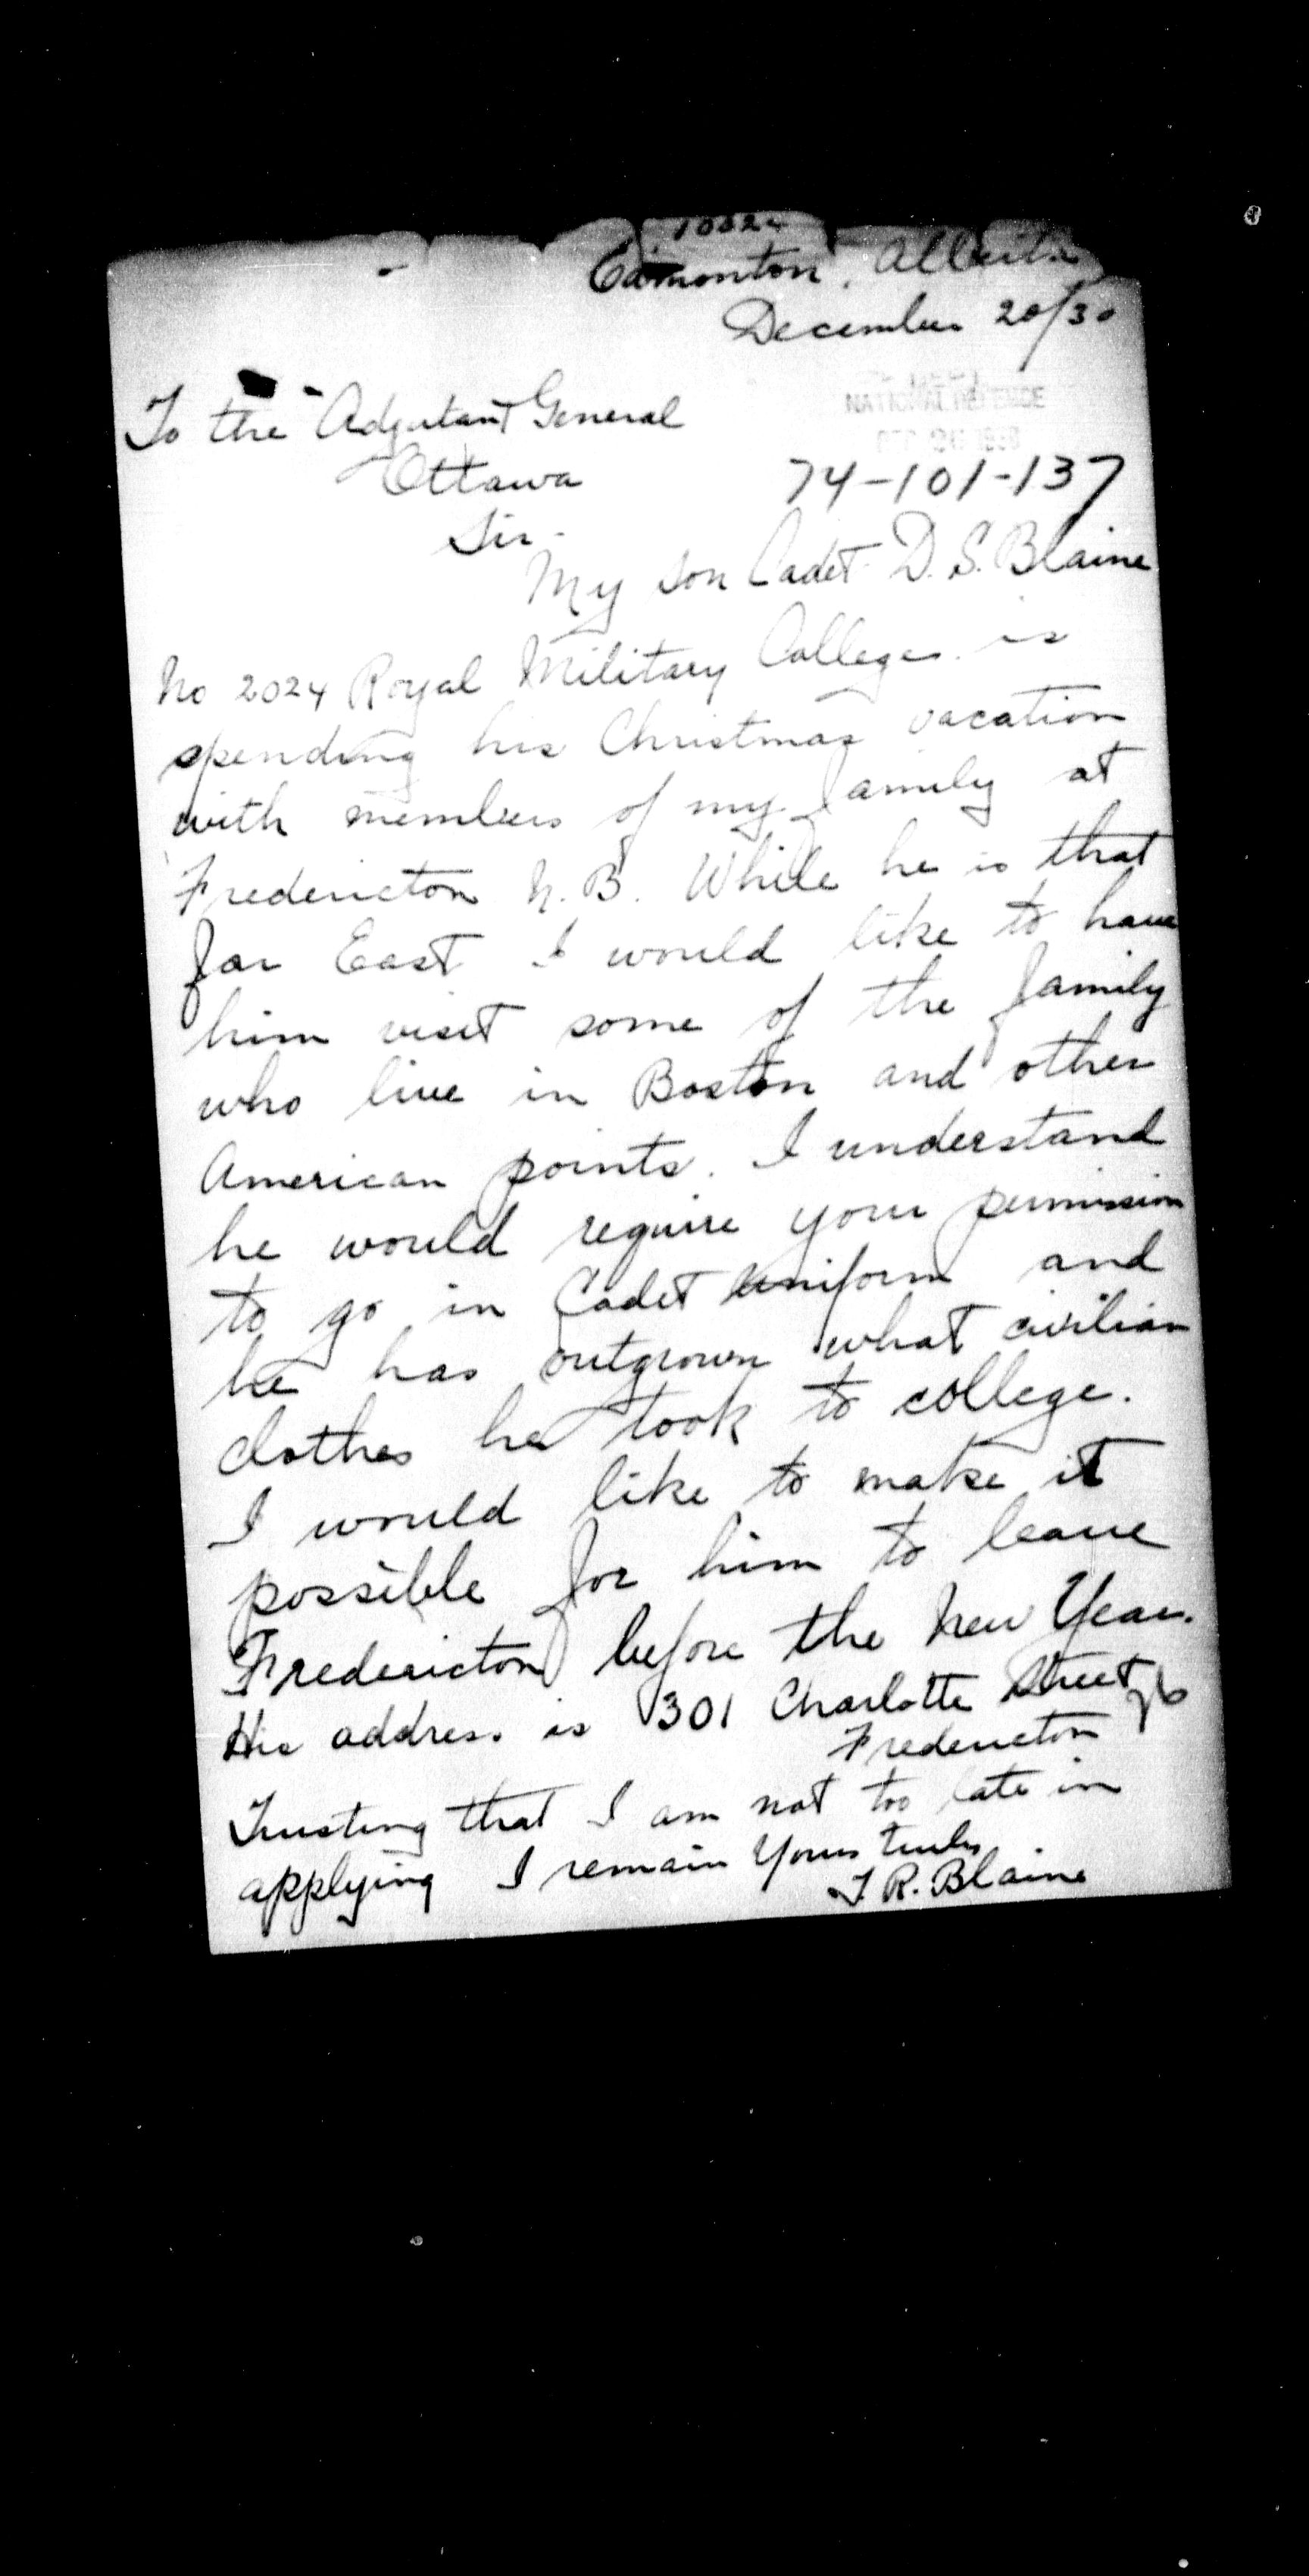 Edmonton, Alberta
December 20/30
NATIONAL DEFENCE
To the Adjutant General
Ottawa
74-101-137
Sir -
My son Cadet D. S. Blaine
No 2024 Royal Military College is
spending his Christmas vacation
with members of my family at
Fredericton N.B. While he is that
far East I would like to have
him visit some of the family
who live in Boston and other
American points. I understand
he would require your permission
to go in Cadet uniform and
he has outgrown what civilian
clothes he took to college.
I would like to make it
possible for him to leave
Fredericton before the New Year.
His address is 301 Charlotte Street
Fredericton
Trusting that I am not too late in
applying I remain Yours truly
R. Blaine